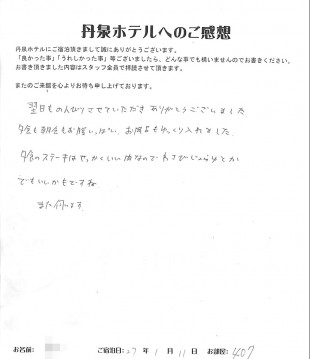 丹泉ホテルへのご感想
丹泉ホテルにご宿泊頂きまして誠にありがとうございます。
「良かった事」「うれしかった事」等ございましたら、どんな事でも構いませんのでお書きください。
お書き頂きました内容はスタッフ全員で拝読させて頂きます。
またのご来館を心よりお待ち申し上げております。
翌日ものんびりさせていただき ありがとうございました
夕食も朝食もお腹いっぱい、お風呂もゆっくり入れました。
夕食のステーキはせっかくいい肉なので わさびじょうゆとか
でもいいかもですね
また伺います
お名前:
ご宿泊日: 27 年 1 月 11 日 お部屋: 407